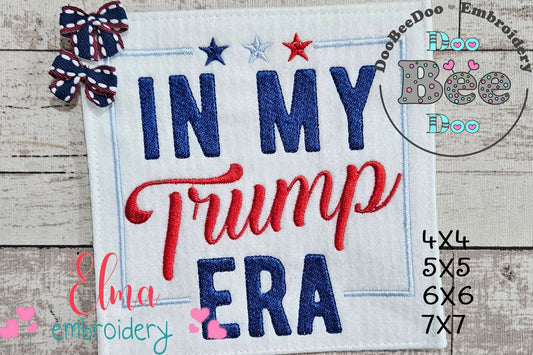 DooBeeDoo - Embroidery
Doo
Bee
Doo
IN MY
Trump
ERA
4X4
5X5
6X6
7X7
Elma
embroidery